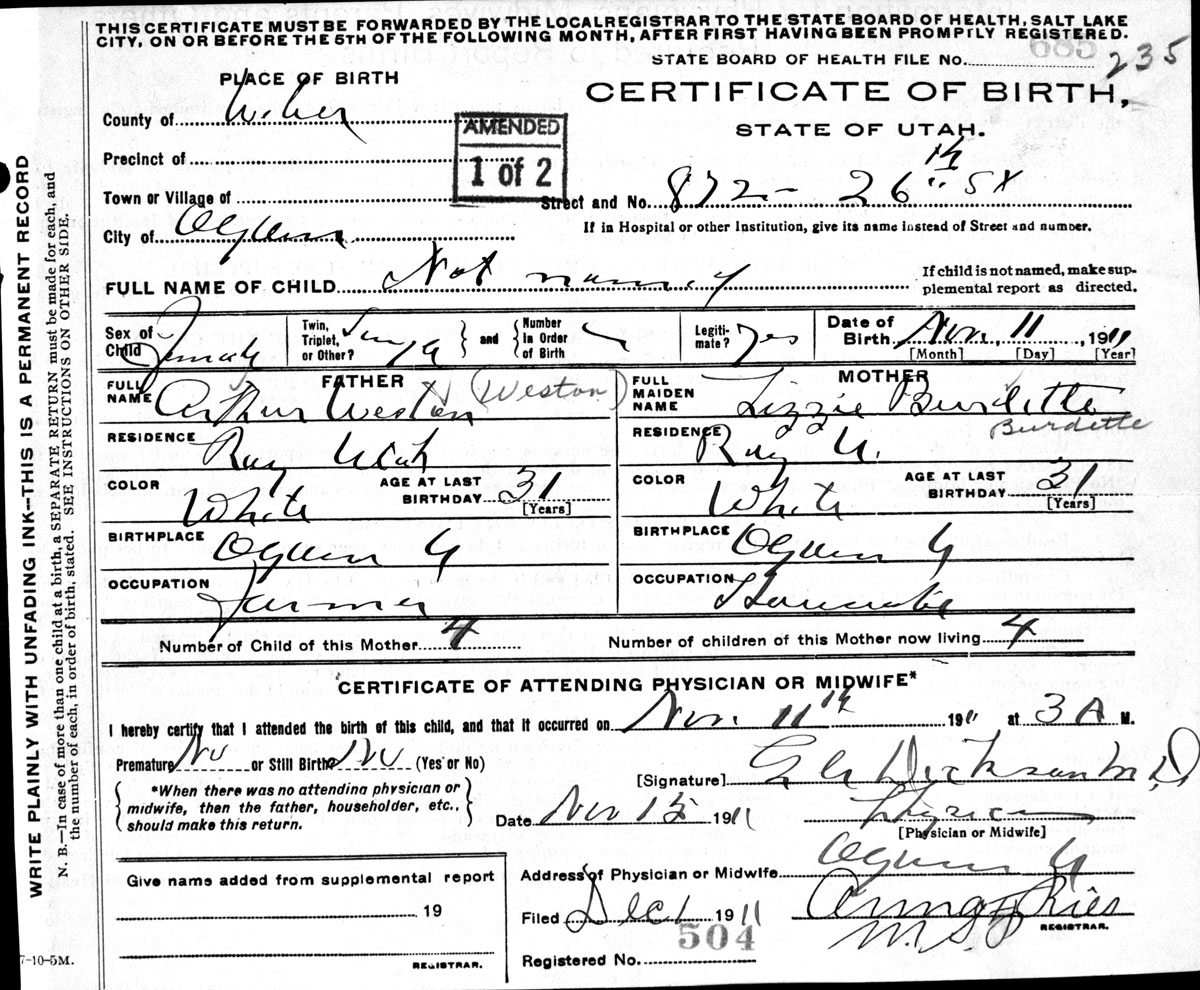 THIS CERTIFICATE MUST BE FORWARDED BY THE LOCALREGISTRAR TO THE STATE BOARD OF HEALTH, SALT LAKE
CITY, ON OR BEFORE THE 5TH OF THE FOLLOWING MONTH, AFTER FIRST HAVING BEEN PROMPTLY REGISTERED.
STATE BOARD OF HEALTH FILE NO. 235
PLACE OF BIRTH
CERTIFICATE OF BIRTH,
STATE OF UTAH.
County of Weber
AMENDED
1 of 2
Precinct of
Town or Village of
Street and No. 872 - 26 th St
City of Ogden
If in Hospital or other Institution, give its name instead of Street and number.
FULL NAME OF CHILD Not named
If child is not named, make sup-
plemental report as directed.
Sex of Child Female
Twin, Triplet, or Other? Single
and
Number In Order of Birth
Legiti-mate? Yes
Date of Birth Nov. 11 1911
[Month] [Day] [Year]
FATHER
FULL NAME Arthur Weston (Weston)
RESIDENCE Roy Utah
COLOR White
AGE AT LAST BIRTHDAY 31
[Years]
BIRTHPLACE Ogden U
OCCUPATION Farmer
MOTHER
FULL MAIDEN NAME Lizzie Burdette
Burdette
RESIDENCE Roy U.
COLOR White
AGE AT LAST BIRTHDAY 31
[Years]
BIRTHPLACE Ogden U
OCCUPATION Housewife
Number of Child of this Mother 4
Number of children of this Mother now living 4
CERTIFICATE OF ATTENDING PHYSICIAN OR MIDWIFE*
I hereby certify that I attended the birth of this child, and that it occurred on Nov. 11th 1911 at 3 A M.
Premature No or Still Birth No (Yes or No)
*When there was no attending physician or
midwife, then the father, householder, etc.,
should make this return.
[Signature] Dickson M.D
Date Nov 15 1911
Physician
[Physician or Midwife]
Address of Physician or Midwife Ogden U
Give name added from supplemental report
19
REGISTRAR.
Filed Dec 1 1911
REGISTRAR.
504
Registered No.
7-10-5M.
WRITE PLAINLY WITH UNFADING INK—THIS IS A PERMANENT RECORD
N. B.—In case of more than one child at a birth, a SEPARATE RETURN must be made for each, and
the number of each, in order of birth, stated. SEE INSTRUCTIONS ON OTHER SIDE.